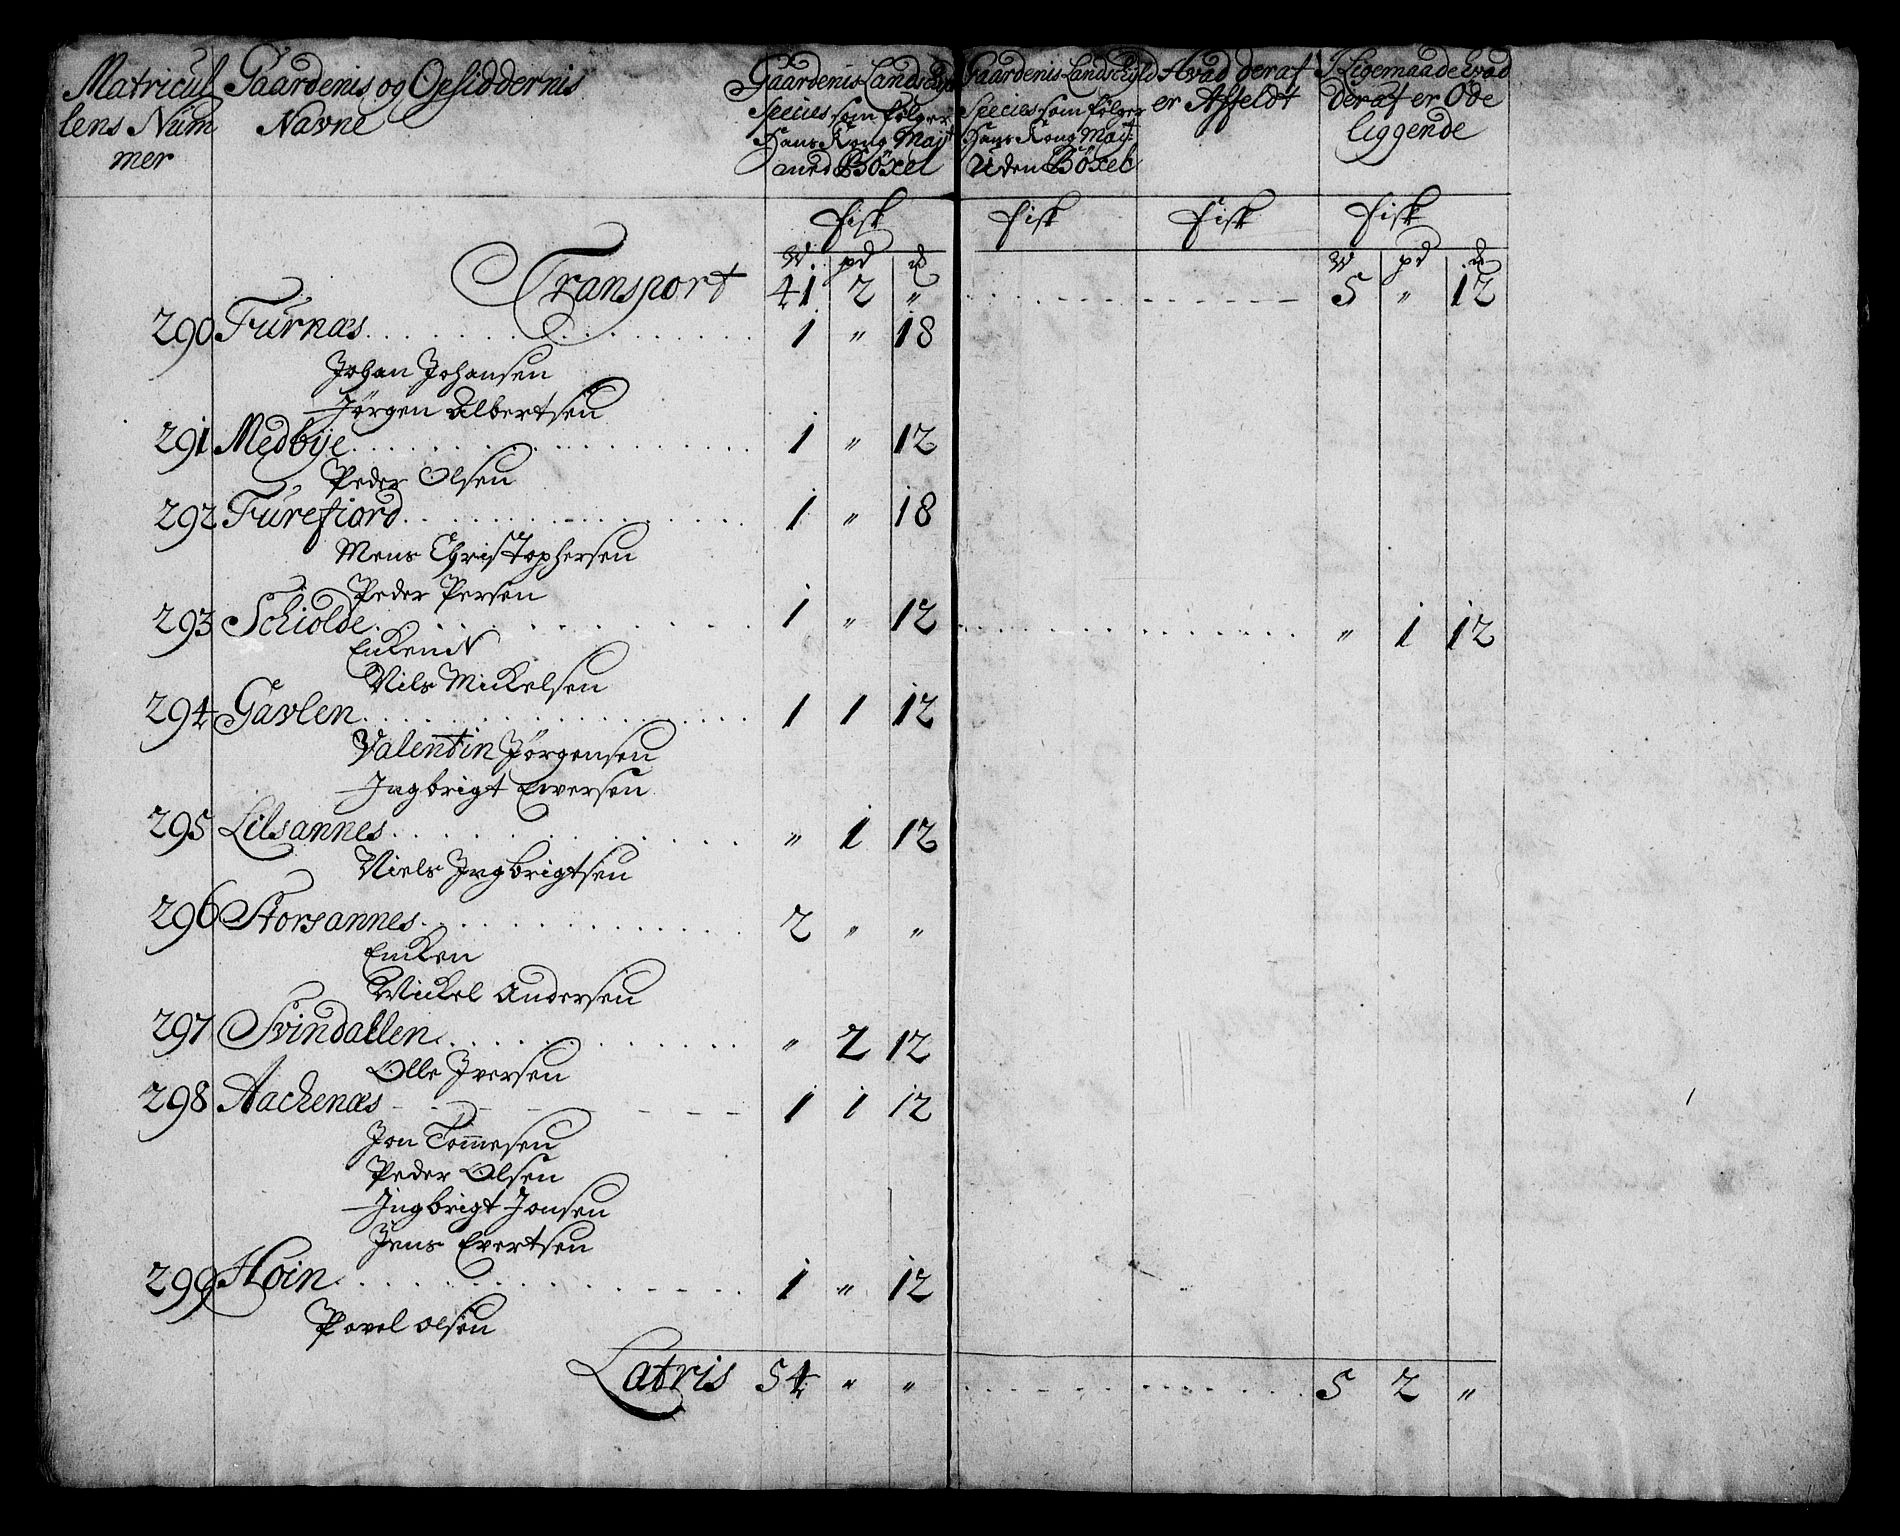 Matricul
lens Num
mer
Gaardenis og Opsiddernis
Navne
Gaardenis Landschyld
Species som følger
Hans Kong May:t
med Böxel
Gaardenis Landschyld
Species som følger
Hans Kong May:t
Uden Böxel
Hvad deraf
er Affeldt
I Ligemaade hvad
deraf er Öde
liggende
fisk fisk fisk fisk
W pd W pd
Transport 41 2 " 5 " 12
290 Furnæs 1 " 18
Johan Johansen
Jörgen Albertsen
291 Medbÿe 1 " 12
Peder Olsen
292 Furefiord 1 " 18
Mens Christophersen
Peder Persen
293 Schiolde 1 " 12 " 1 12
Enken
Nils Mickelsen
294 Gavlen 1 1 12
Valentin Jörgensen
Ingbrigt Eversen
295 Lilsannes " 1 12
Niels Ingbrigtsen
296 Storsannes 2 " "
Encken
Mickel Andersen
297 Svindallen " 2 12
Olle Iversen
298 Aachenæs 1 1 12
Jon Tom̄esen
Peder Olsen
Ingbrigt Jonsen
Jens Evertsen
299 Hoin 1 " 12
Povel Olsen
Latris 54 " " 5 2 "